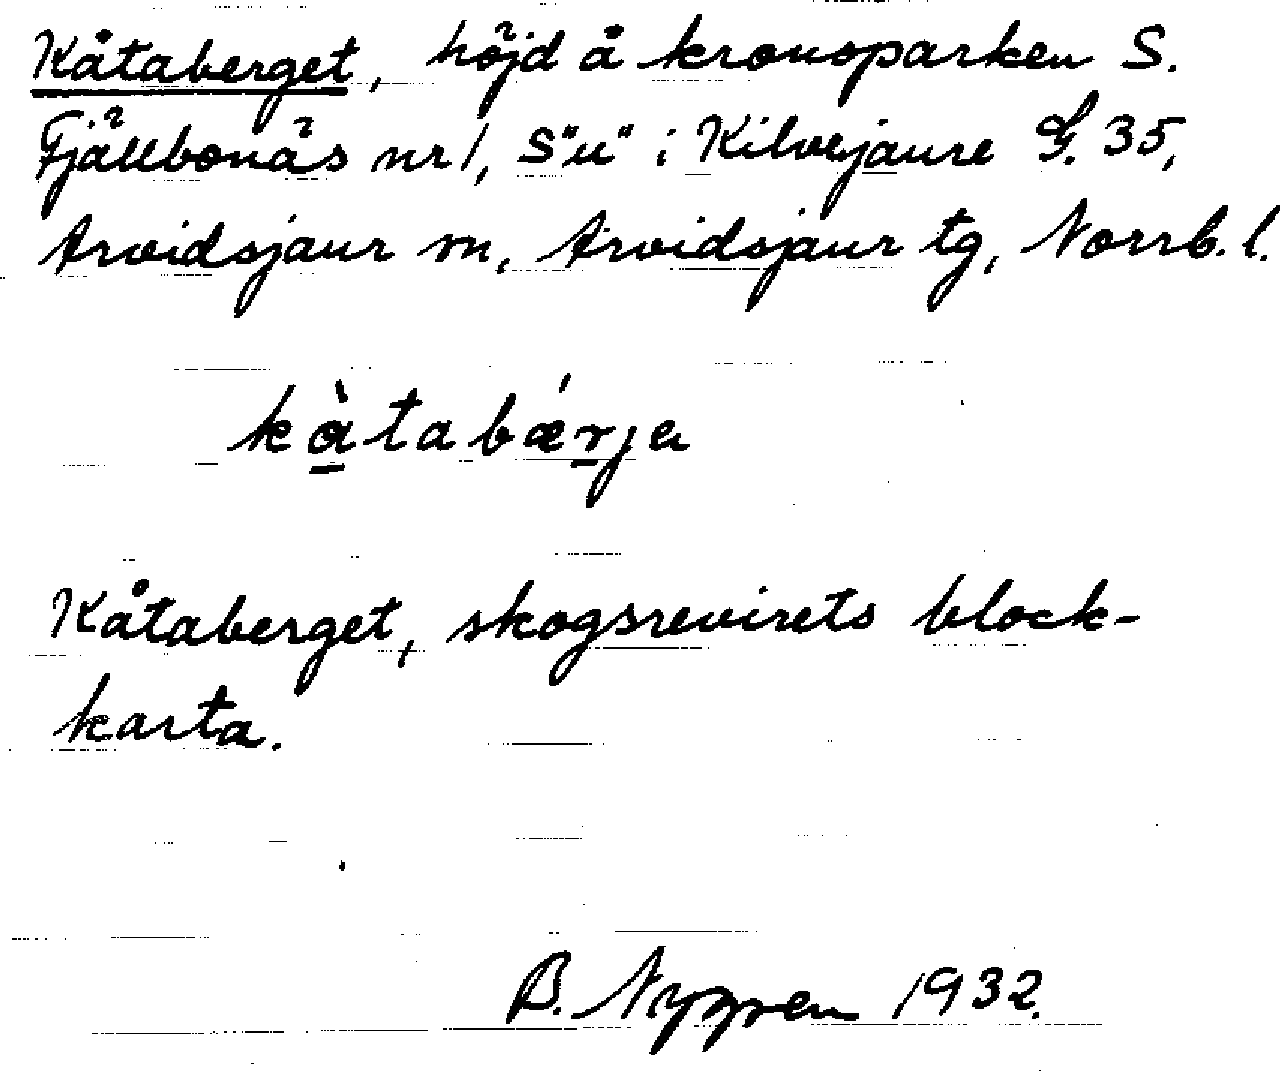 Kåtaberget, höjd å kronoparken S.
Fjällbonäs nr 1, S"u" i Kilvejaure G. 35,
Arvidsjaur sn, Arvidsjaur tg, Norrb. l.
kà̠tabǽr̠ja
Kåtaberget, skogsrevirets block-
karta.
B. Nygren 1932.